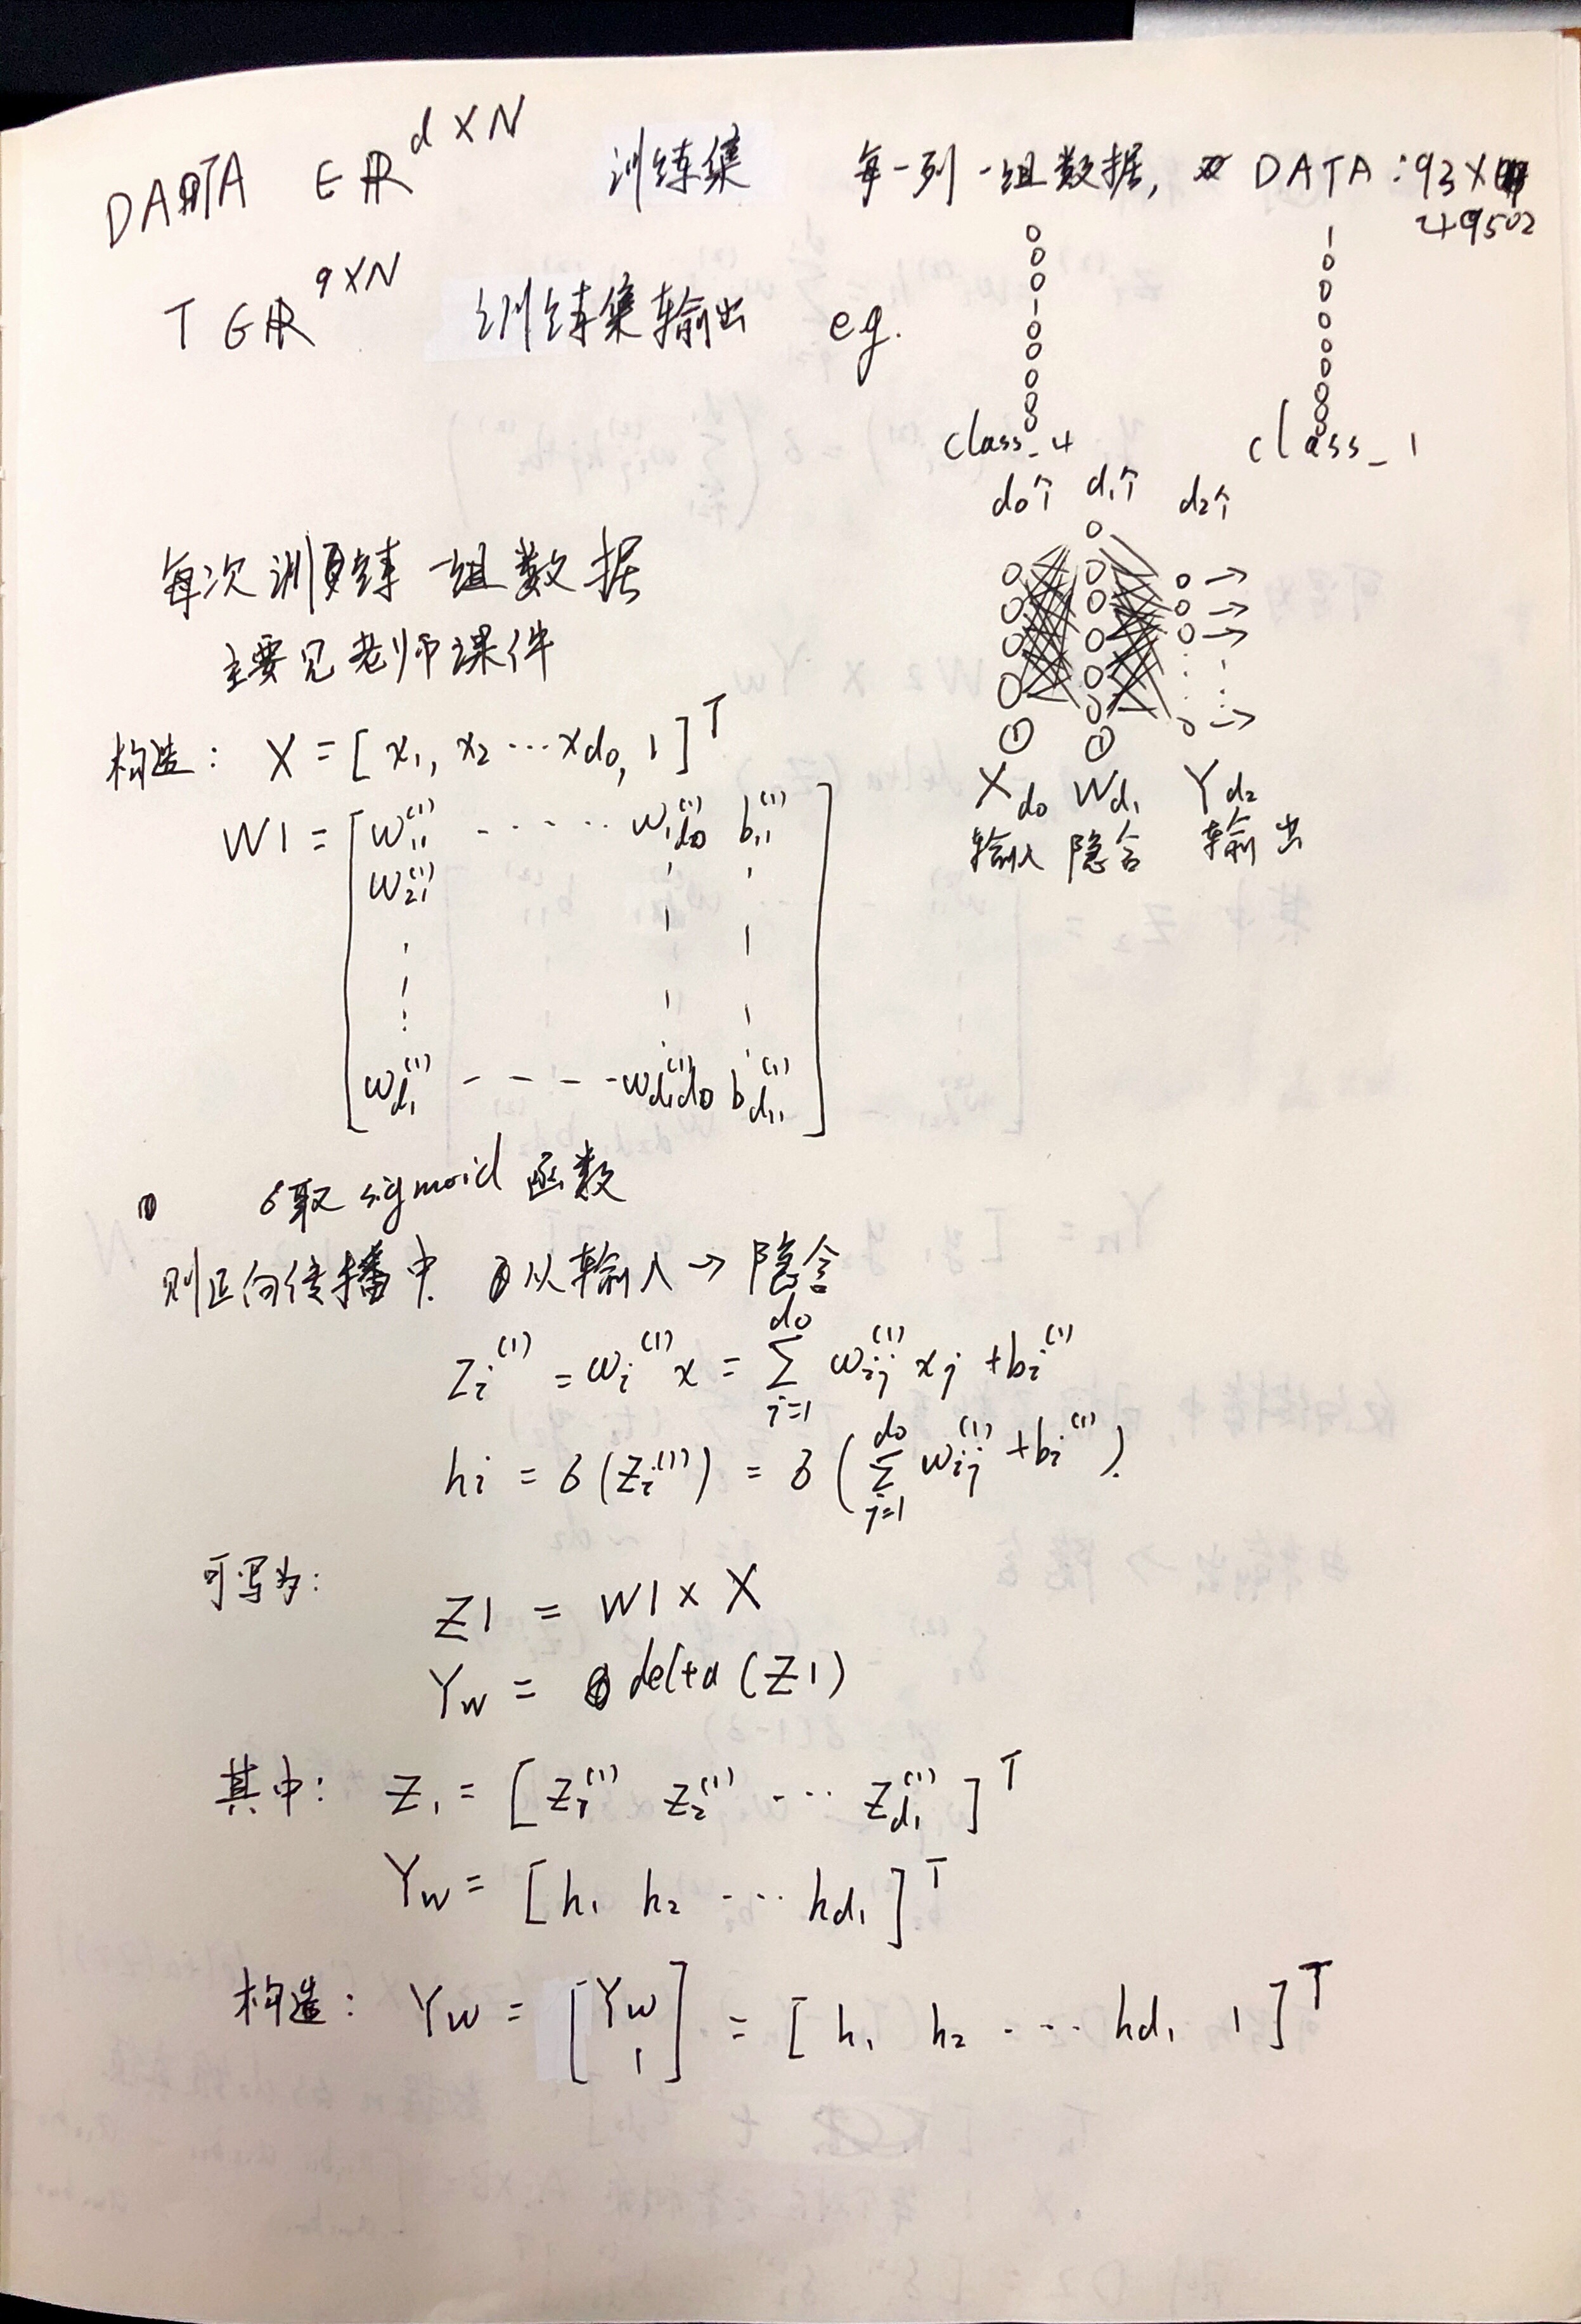 DATA ∈ ℝ^{d×N} 训练集 每一列一组数据, DATA: 93×49502
T ∈ ℝ^{9×N} 训练集输出 eg.
0 0 0 1 0 0 0 0 0
class_4
1 0 0 0 0 0 0 0 0
class_1
d₀个 d₁个 d₂个
① ①
X_{d₀} W_{d₁} Y_{d₂}
输入 隐含 输出
每次训练一组数据
主要见老师课件
构造: X = [x₁, x₂ ⋯ x_{d₀}, 1]^T
W1 = [w₁₁^{(1)} - - - - - w_{1d₀}^{(1)} b₁₁^{(1)}
w₂₁^{(1)}
w_{d₁}^{(1)} - - - - w_{d₁d₀}^{(1)} b_{d₁1}^{(1)}]
6取 sigmoid 函数
则正向传播中 从输入 → 隐含
z_i^{(1)} = w_i^{(1)} x = ∑_{j=1}^{d₀} w_{ij}^{(1)} x_j + b_i^{(1)}
h_i = 6(z_i^{(1)}) = 6(∑_{j=1}^{d₀} w_{ij}^{(1)} + b_i^{(1)}).
可写为:
Z1 = W1 × X
Y_w = delta(Z1)
其中: Z₁ = [z₁^{(1)} z₂^{(1)} ⋯ z_{d₁}^{(1)}]^T
Y_w = [h₁ h₂ ⋯ h_{d₁}]^T
构造: Y_w = [Y_w
1] = [h₁ h₂ ⋯ h_{d₁} 1]^T